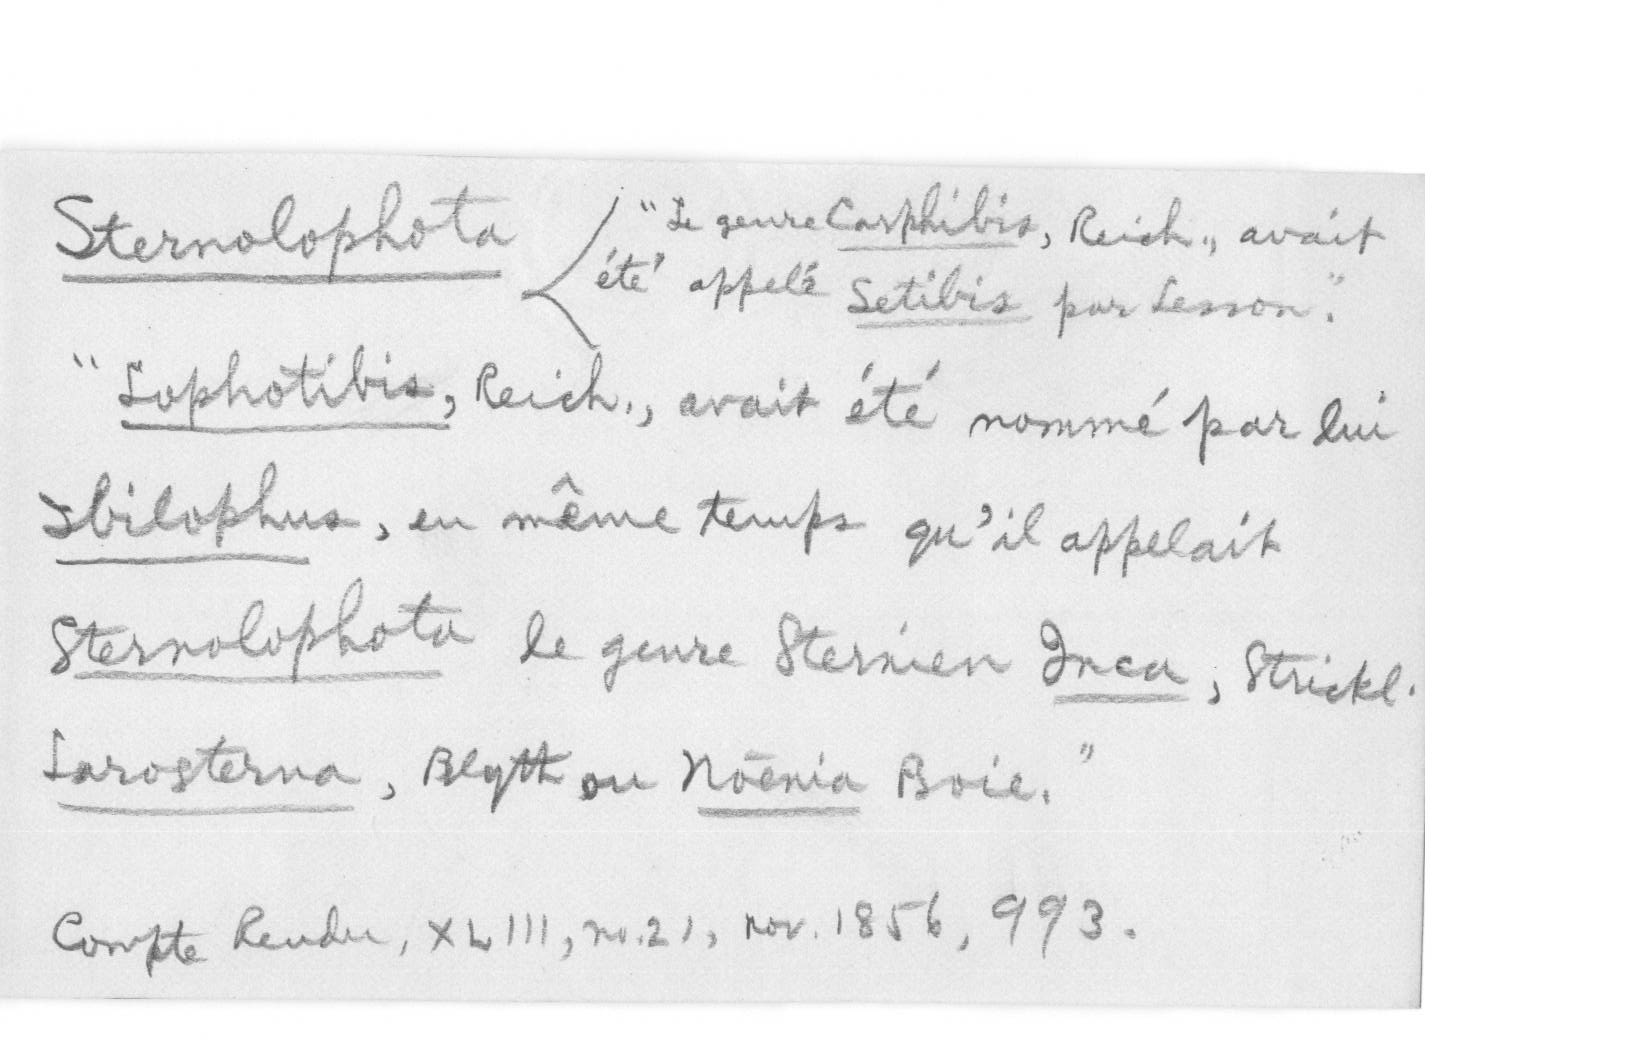 Sternolophota
"Le genre Carphibis, Reich., avait
été appelé Setibis par Lesson."
"Lophotibis, Reich., avait été nommé par lui
Ibilophus, en même temps qu'il appelait
Sternolophota le genre Sternien Inca, Strickl.
Larosterna, Blyth ou Nöenia Boie."
Compte Rendu, XLIII, no. 21, nov. 1856, 993.